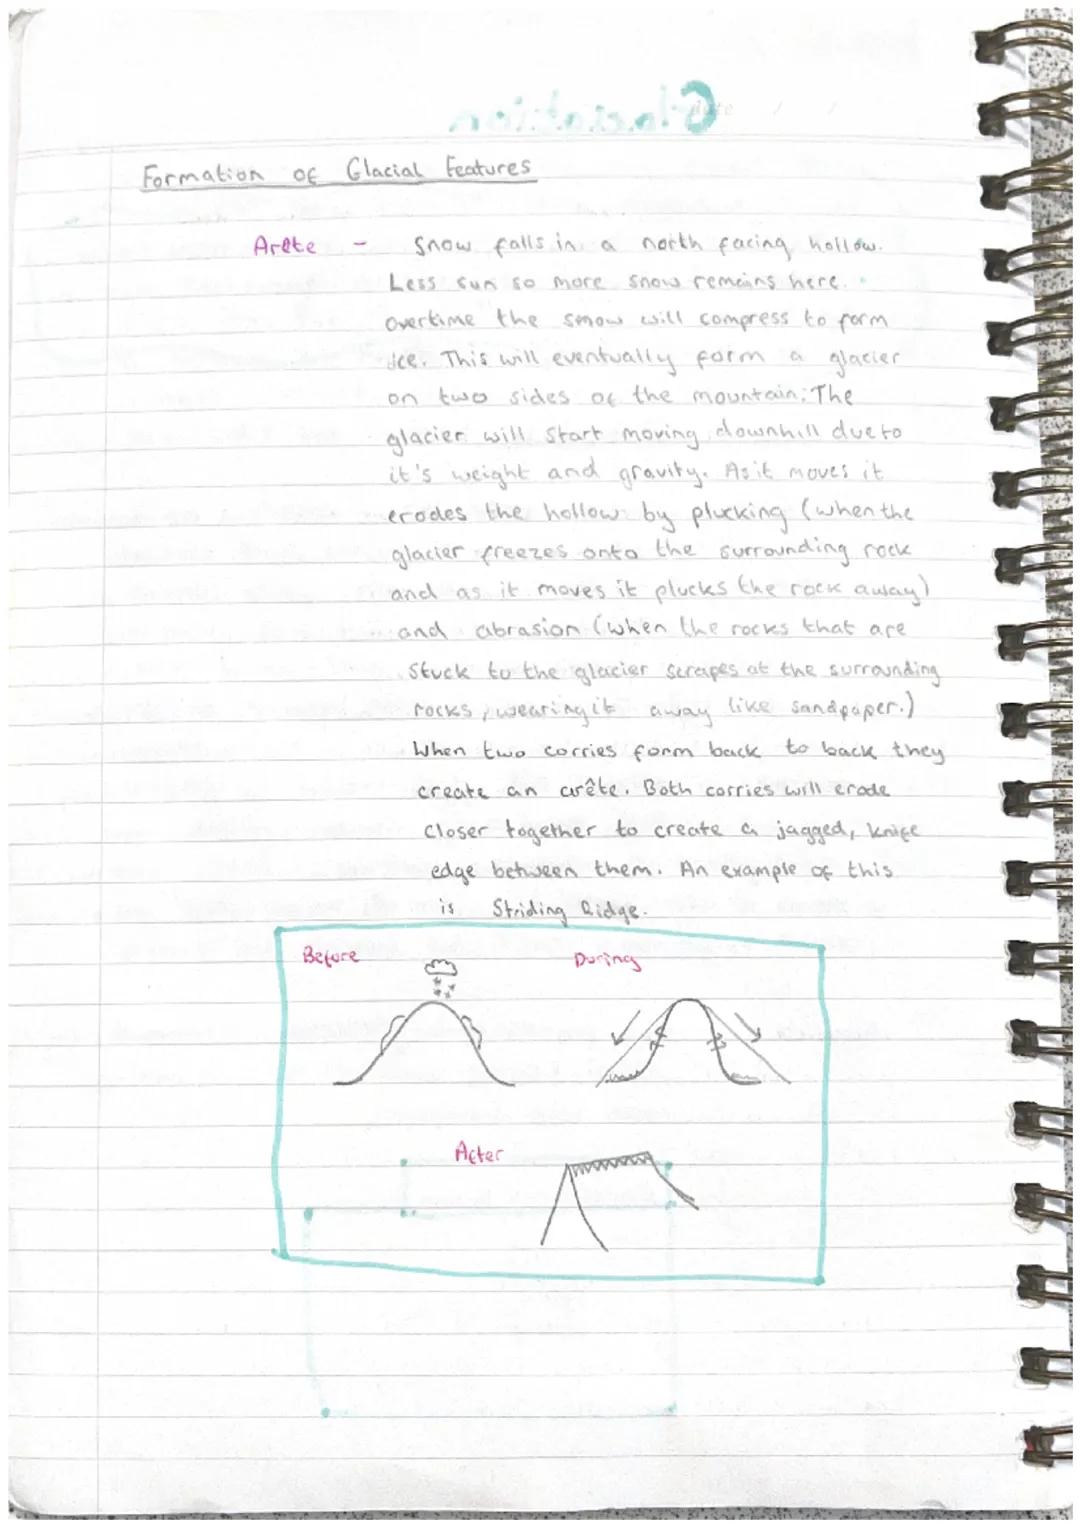 Glaciation
date / /
Formation of Glacial Features
Arête - Snow falls in a north facing hollow.
Less sun so more snow remains here.
overtime the snow will compress to form
ice. This will eventually form a glacier
on two sides of the mountain. The
glacier will start moving downhill due to
it's weight and gravity. As it moves it
erodes the hollow by plucking (when the
glacier freezes onto the surrounding rock
and as it moves it plucks the rock away)
and abrasion (when the rocks that are
stuck to the glacier scrapes at the surrounding
rocks, wearing it away like sandpaper.)
When two corries form back to back they
create an arête. Both corries will erode
closer together to create a jagged, knife
edge between them. An example of this
is Striding Ridge.
Before
During
After